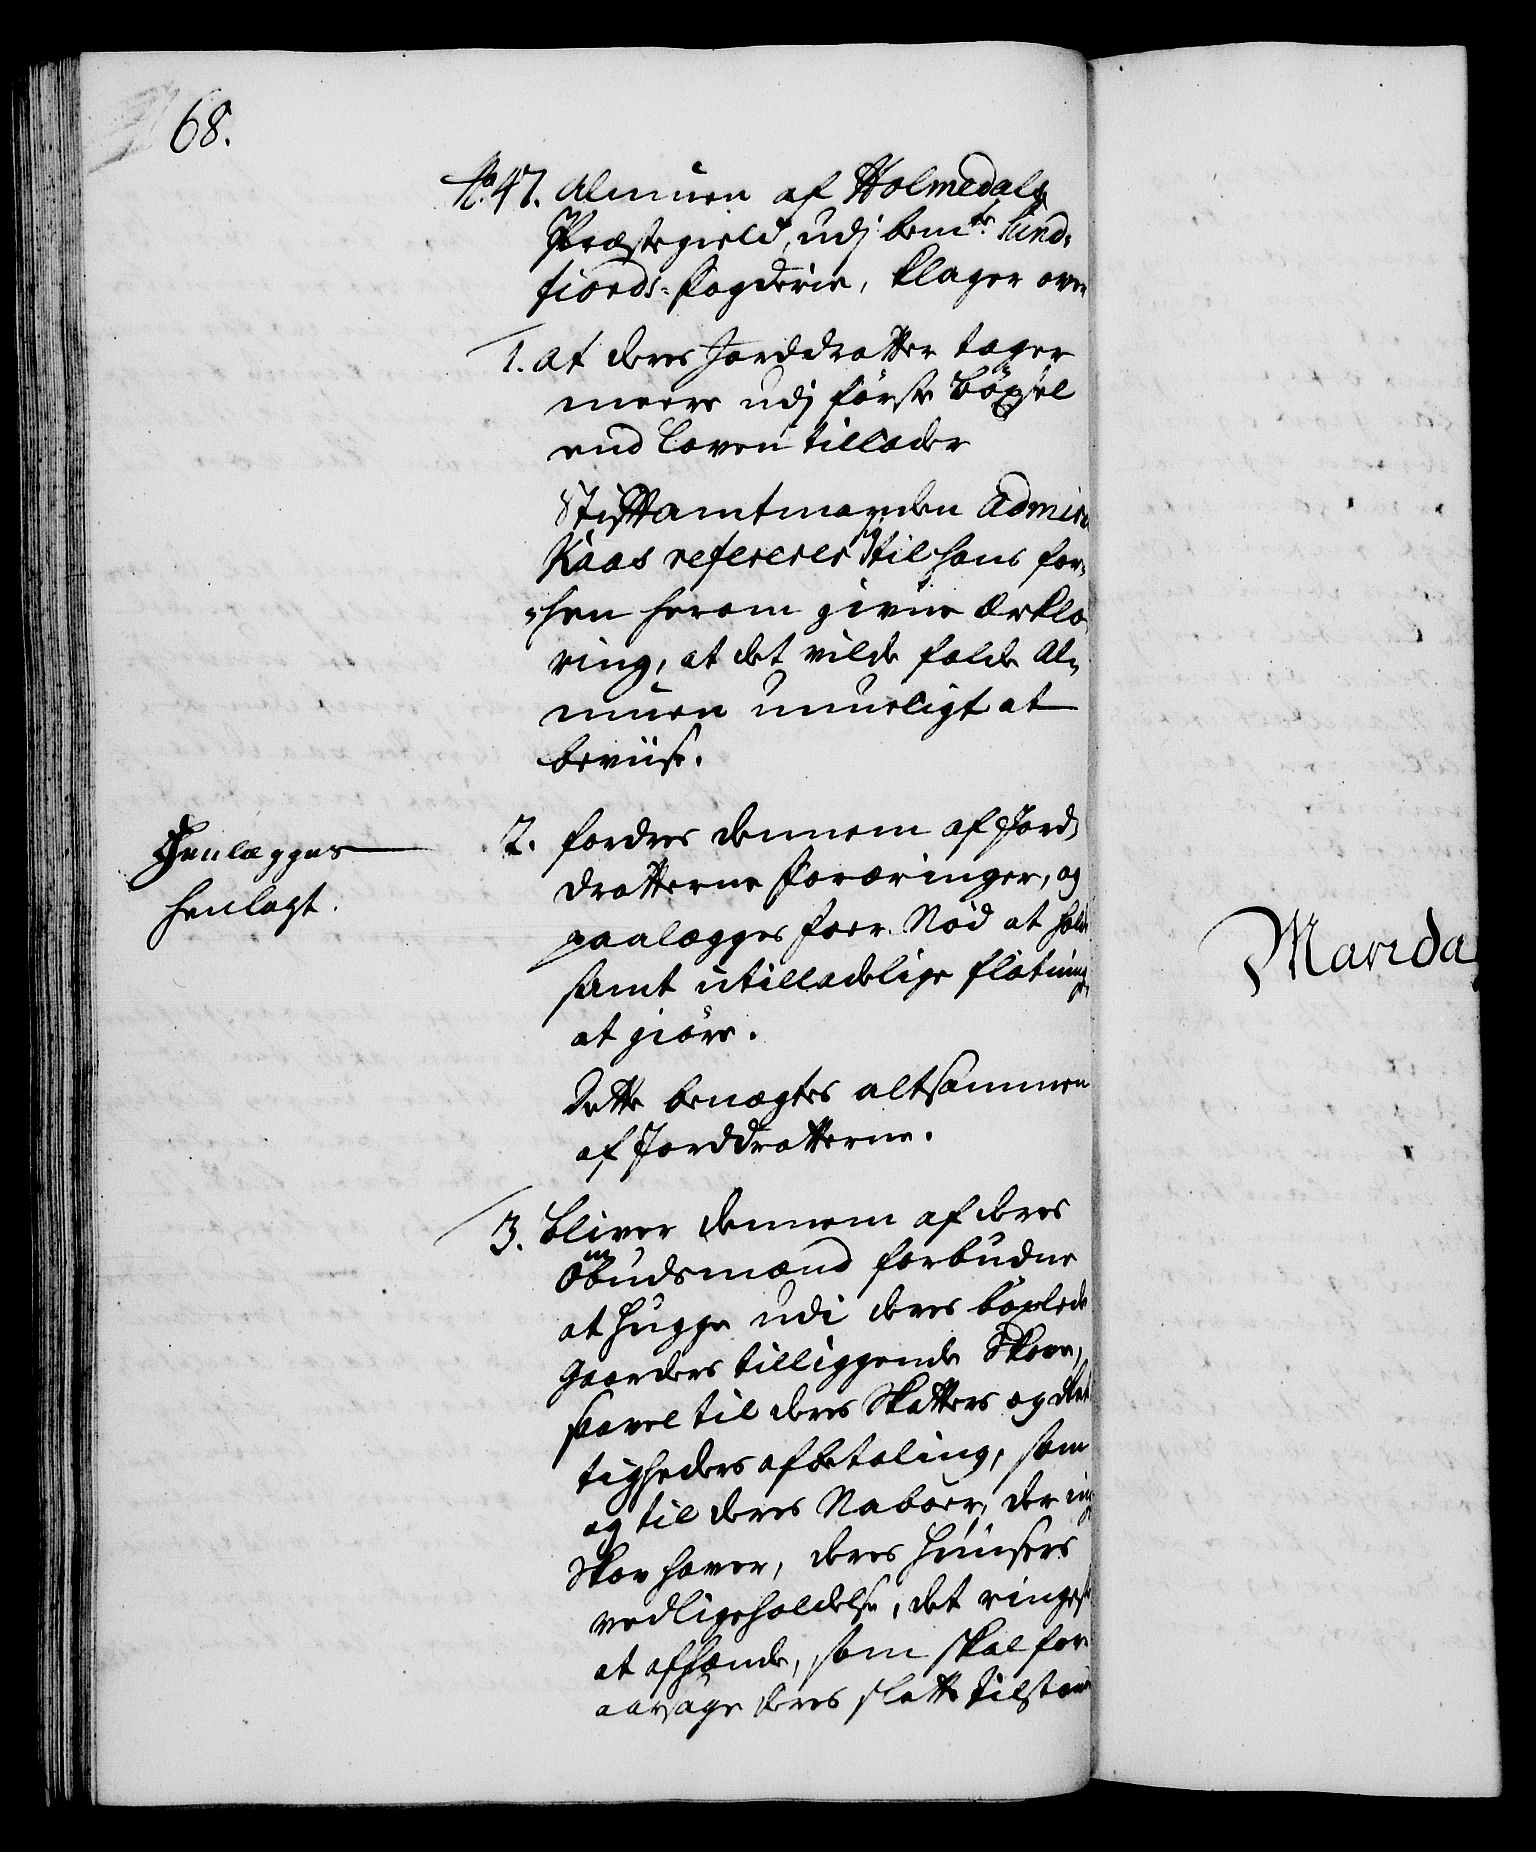 68.
No 47. Almuen af Holmedals
Præstegield, udj bemte Sund-
fiords-Fogderie, klager over
1. at deres Jorddrotter tager
meere udj første böxsel
end Loven tillader
Stiftamtmanden Admiral
Kaas refererer sig til hans for-
hen herom givne Ærklæ
ring, at det vilde falde Al-
muen umueligt at
beviise.
2. fordres dennem af Jord
drotterne Foræringer, og
paalægges foer Nöd at holde
samt utilladelige flötninger
at giöre.
Dette benægtes altsammen
af Jorddrotterne.
Henlægges
henlagt.
3. bliver dennem af deres
Ombudsmænd forbudne
at hugge udi deres böxlede
Gaarders tilliggende Skove,
saavel til deres Skatters og Ret
tigheders afbetaling, som
og til deres Naboer, der ing
Skov haver, deres Huusers
vedligeholdelse, det ringeste
at afhænde, som skal for
aarsage deres slette tilstand
Manda